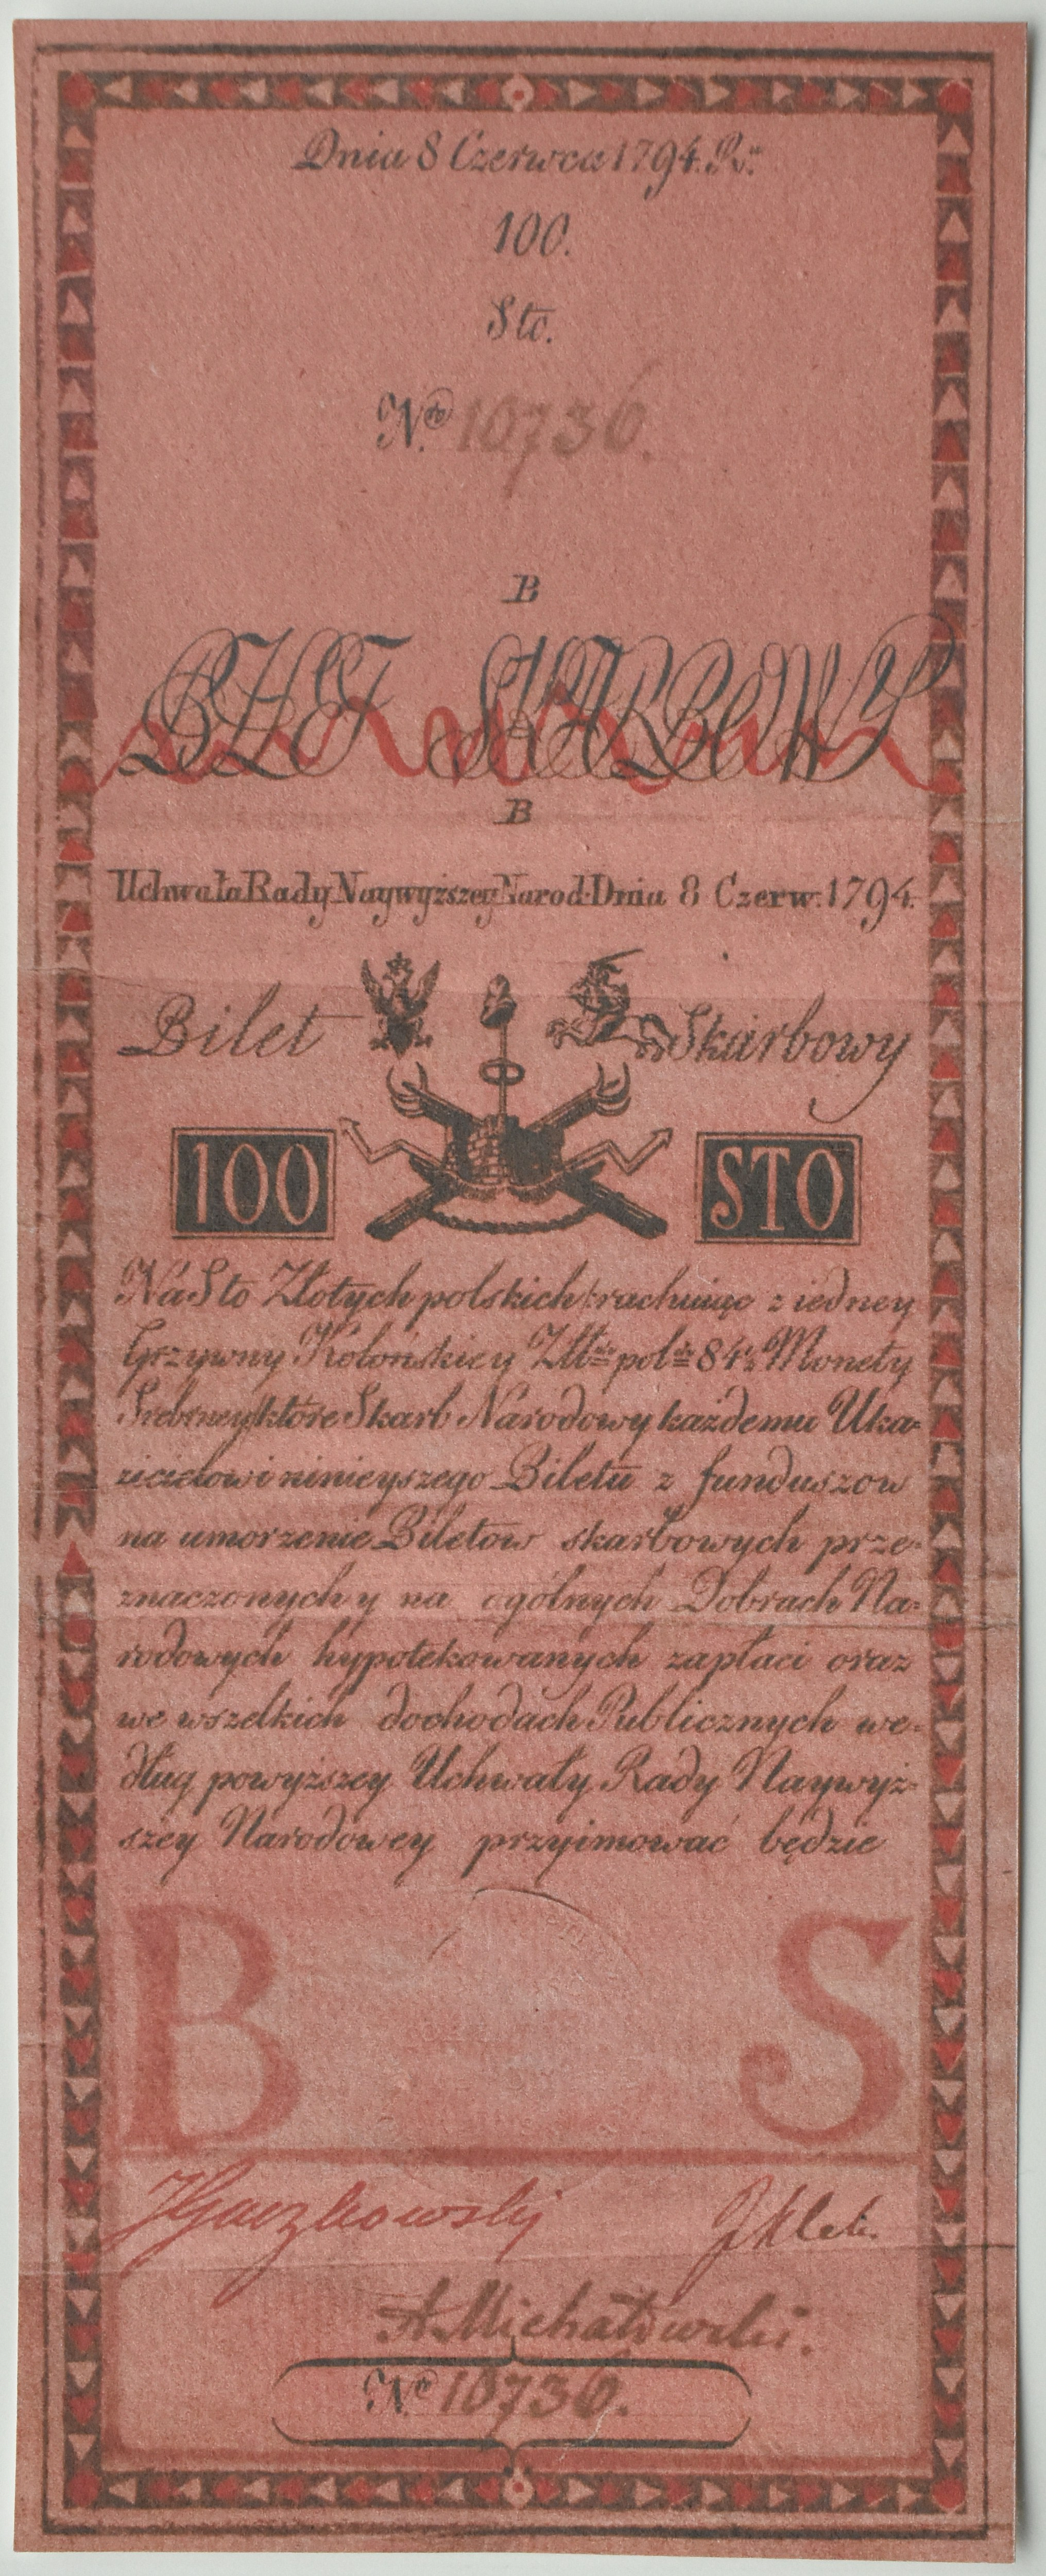 Dnia 8 Czerwca 1794. R.u
100.
Sto.
Nro 10736.
B
BILET SKARBOWY
B
Uchwała Rady Naywyższey Narod: Dnia 8 Czerw: 1794.
Bilet Skarbowy
100 STO
Na Sto Złotych polskich rachuiąc z iedney
Grzywny Kolońskiey Złł: pol: 84 1/2 Monety
Srebrney które Skarb Narodowy każdemu Uka=
zicielowi ninieyszego Biletu z funduszow
na umorzenie Biletow skarbowych prze=
znaczonych y na ogólnych Dobrach Na=
rodowych hypotekowanych zapłaci oraz
we wszelkich dochodach Publicznych we=
dług powyższey Uchwały Rady Naywyż=
szey Narodowey przyimować będzie
B S
JGaczkowski JKlek.
A. Michałowski.
No 10736.